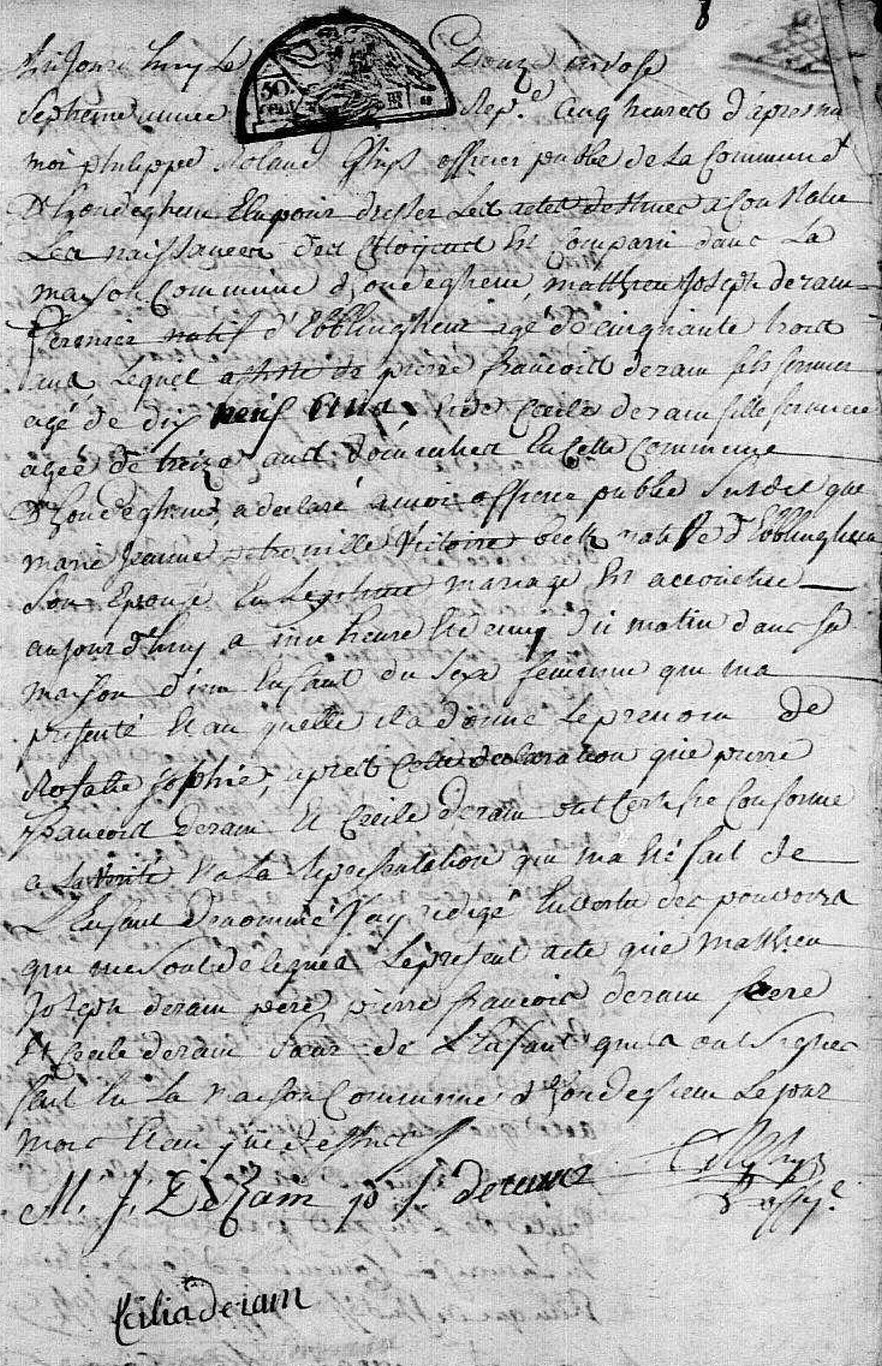 8
hui le Douze nivose
50 cent
Septieme année Repe. Cinq heures d'apres
moi philippe Roland officier public de la Commune
D'hondeghem Elu pour dresser les actes destinés a Constater
Les naissances des Citoyens Est Comparu dans La
maison Commune d'hondeghem, matthieu Joseph deram
fermier natif d'Ebblinghem agé de cinquante trois
ans, Lequel assisté de pierre francois deram fils fermier
agé de dix neuf ans, et de Cecile deram fille fermiere
agée de treize ans domiciliés En Cette Commune
D'hondeghem, a declaré a moi officier public susdit que
marie Jeanne petronille Victoire beck native d'Ebblinghem
Son Epouse En Legitime mariage Est accouchée
aujourd'huy a une heure et demy du matin dans sa
maison d'un Enfant du Sexe feminin qui ma
presenté Et au quelle il a donné Le prenom de
Rosalie Sophie, apres Cette declaration que pierre
francois deram Et Cecile deram ont Certifié Conforme
a La Verité Et a La representation qui ma été fait de
L'Enfant denommé J'ay redigé En vertu des pouvoirs
qui me sont delegués Le present acte que Matthieu
Joseph deram pere, pierre francois deram frere
Et Cecile deram Sœur de L'Enfant qui ont Signés
fait En La Maison Commune d'hondeghem Le jour
mois Et an que dessus
M. J. DeRam p f deram
offic.
Cecilia deram